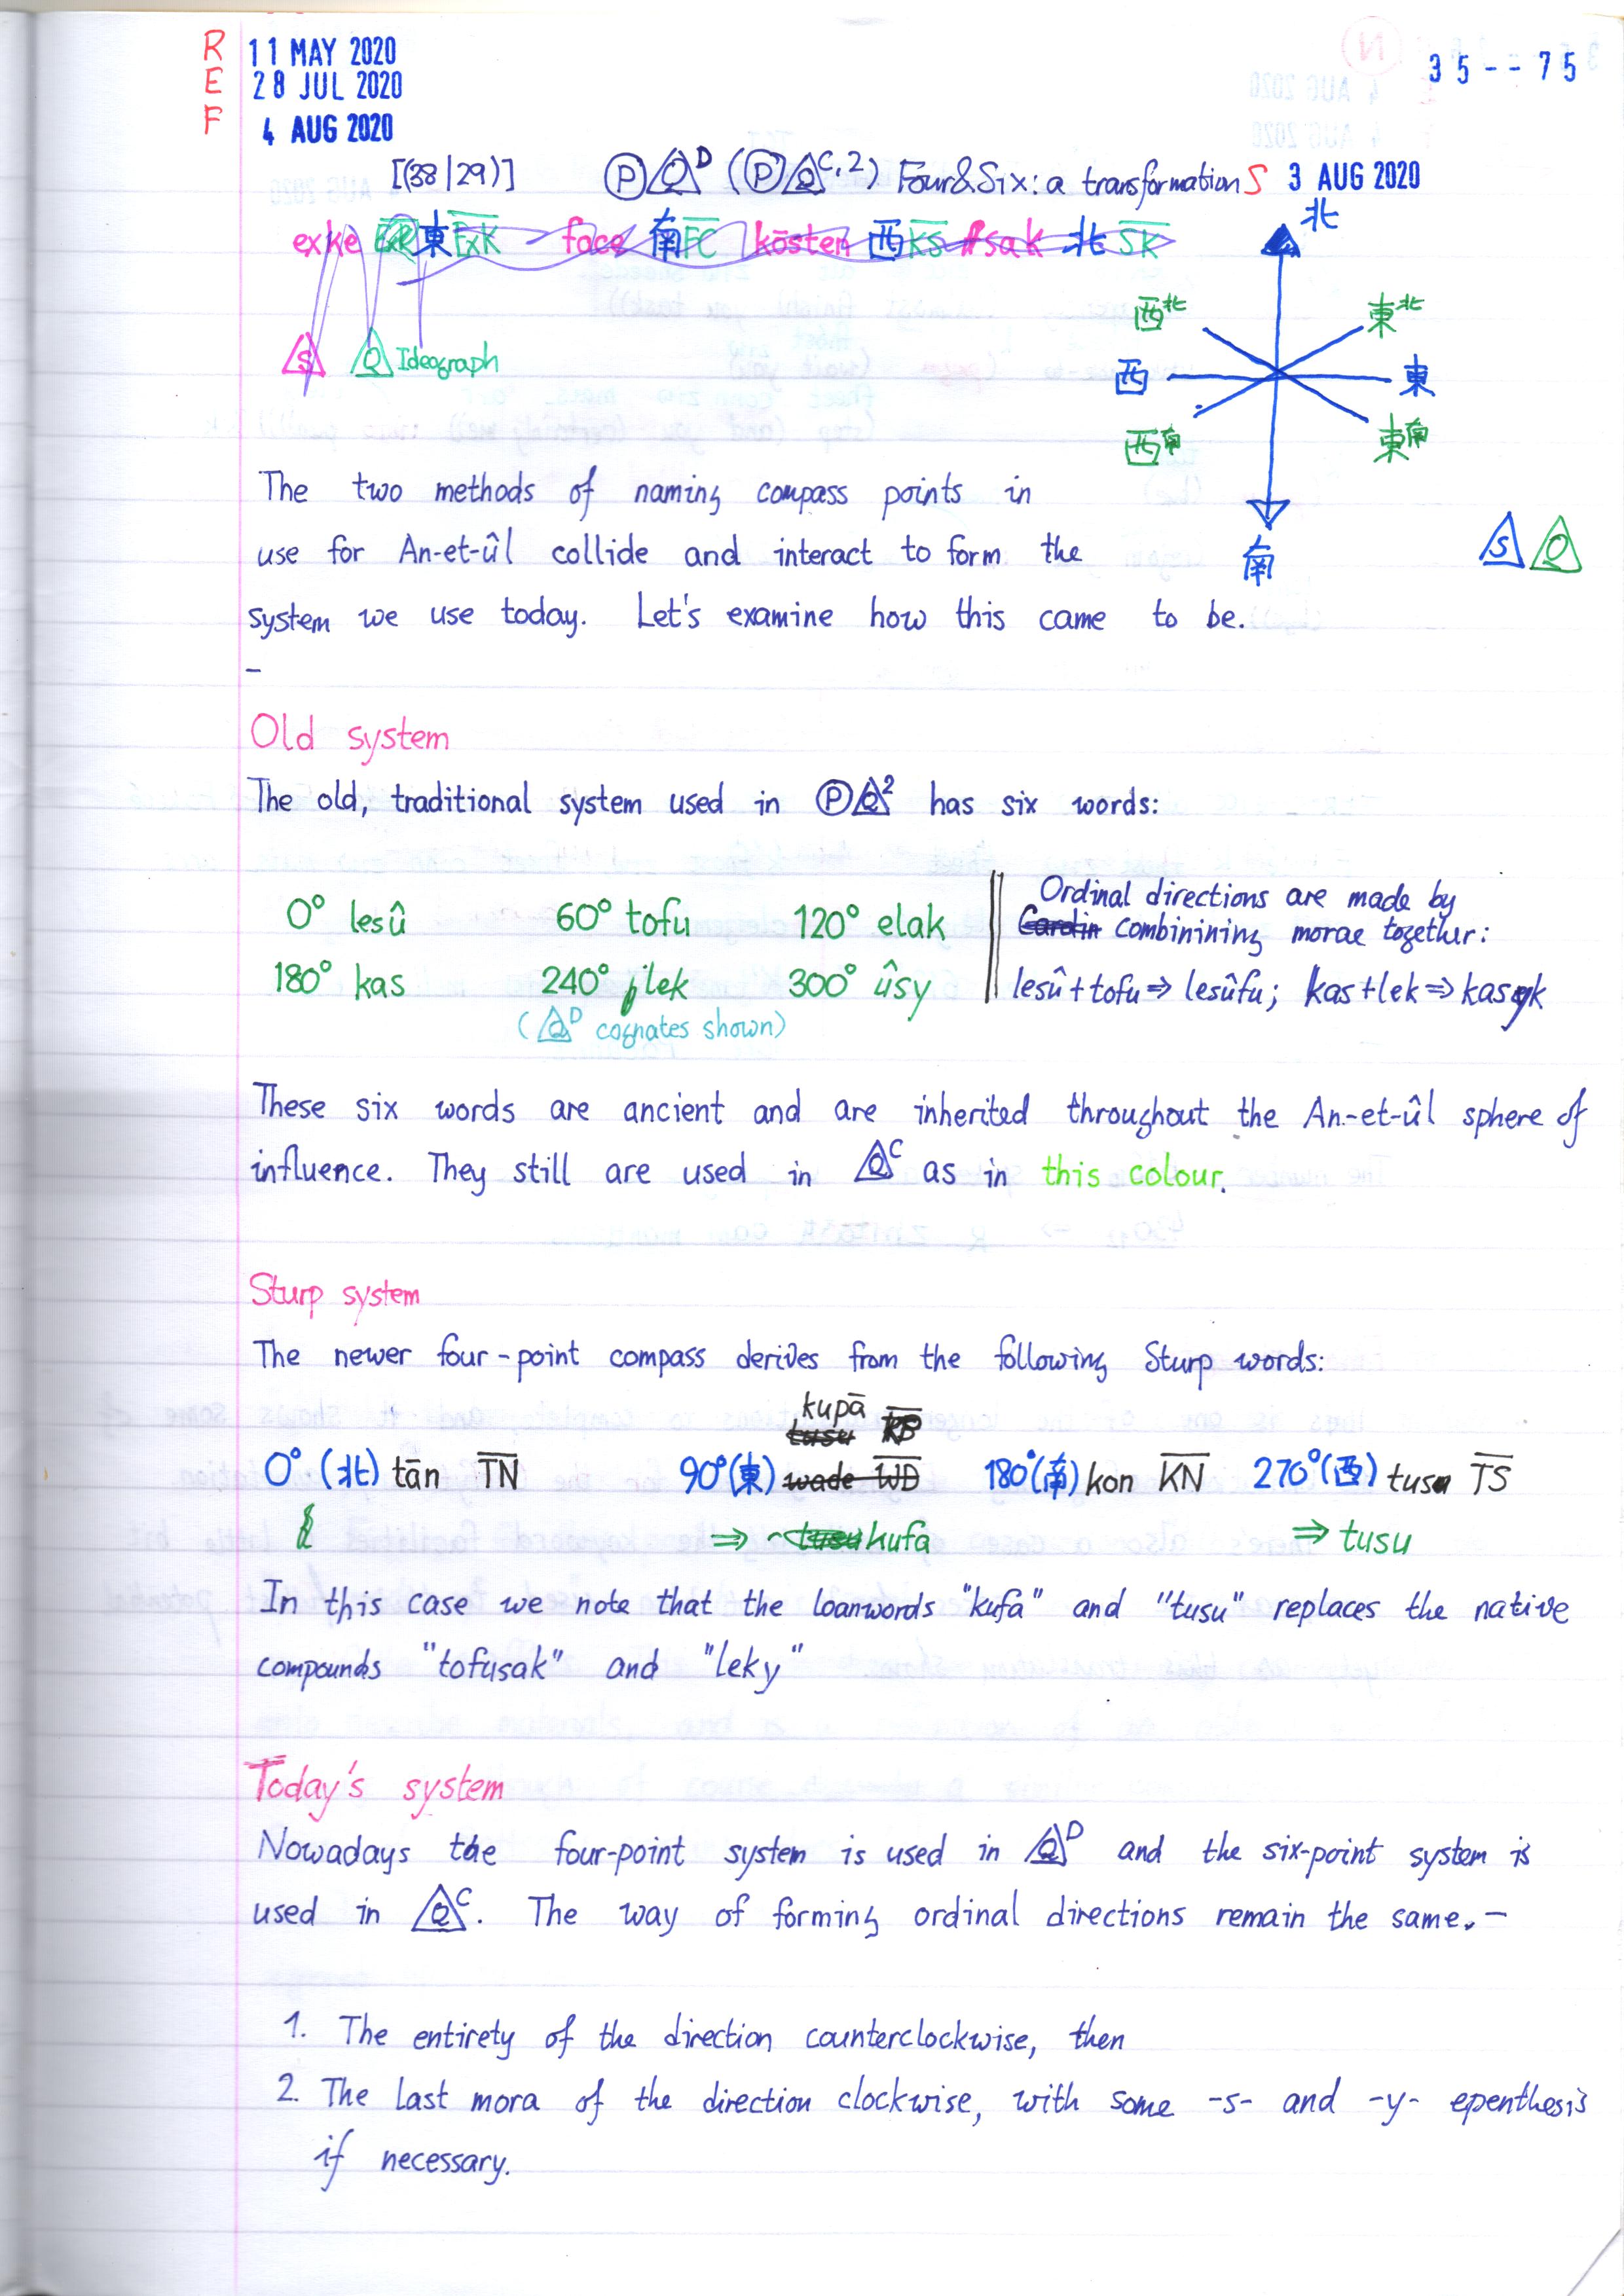 R 11 MAY 2020
E 28 JUL 2020
F 4 AUG 2020
35--75
[(38|29)] Ⓟ△Q^D (Ⓟ△Q^C,2) Four&Six: a transformation S 3 AUG 2020
exke 東 ExK face 南 FC kösten 西 KS sak 北 SK
北
西北 東北
西 東
西南 東南
南
S Q Ideograph
S Q
The two methods of naming compass points in
use for An-et-ûl collide and interact to form the
system we use today. Let's examine how this came to be.
–
Old system
The old, traditional system used in Ⓟ△Q² has six words:
0° lesû 60° tofu 120° elak
180° kas 240° lek 300° ûsy
(△Q^D cognates shown)
Ordinal directions are made by
Cardin combinining morae together:
lesû + tofu ⇒ lesûfu; kas + lek ⇒ kasyk
These six words are ancient and are inherited throughout the An-et-ûl sphere of
influence. They still are used in △Q^C as in this colour.
Sturp system
The newer four-point compass derives from the following Sturp words:
kupā
tusu KP
0° (北) tān TN 90° (東) wade WD 180° (南) kon KN 270° (西) tusu TS
⇒ tusu kufa ⇒ tusu
In this case we note that the loanwords "kufa" and "tusu" replaces the native
compounds "tofusak" and "leky"
Today's system
Nowadays the four-point system is used in △Q^D and the six-point system is
used in △Q^C. The way of forming ordinal directions remain the same. –
1. The entirety of the direction counterclockwise, then
2. The last mora of the direction clockwise, with some -s- and -y- epenthesis
if necessary.